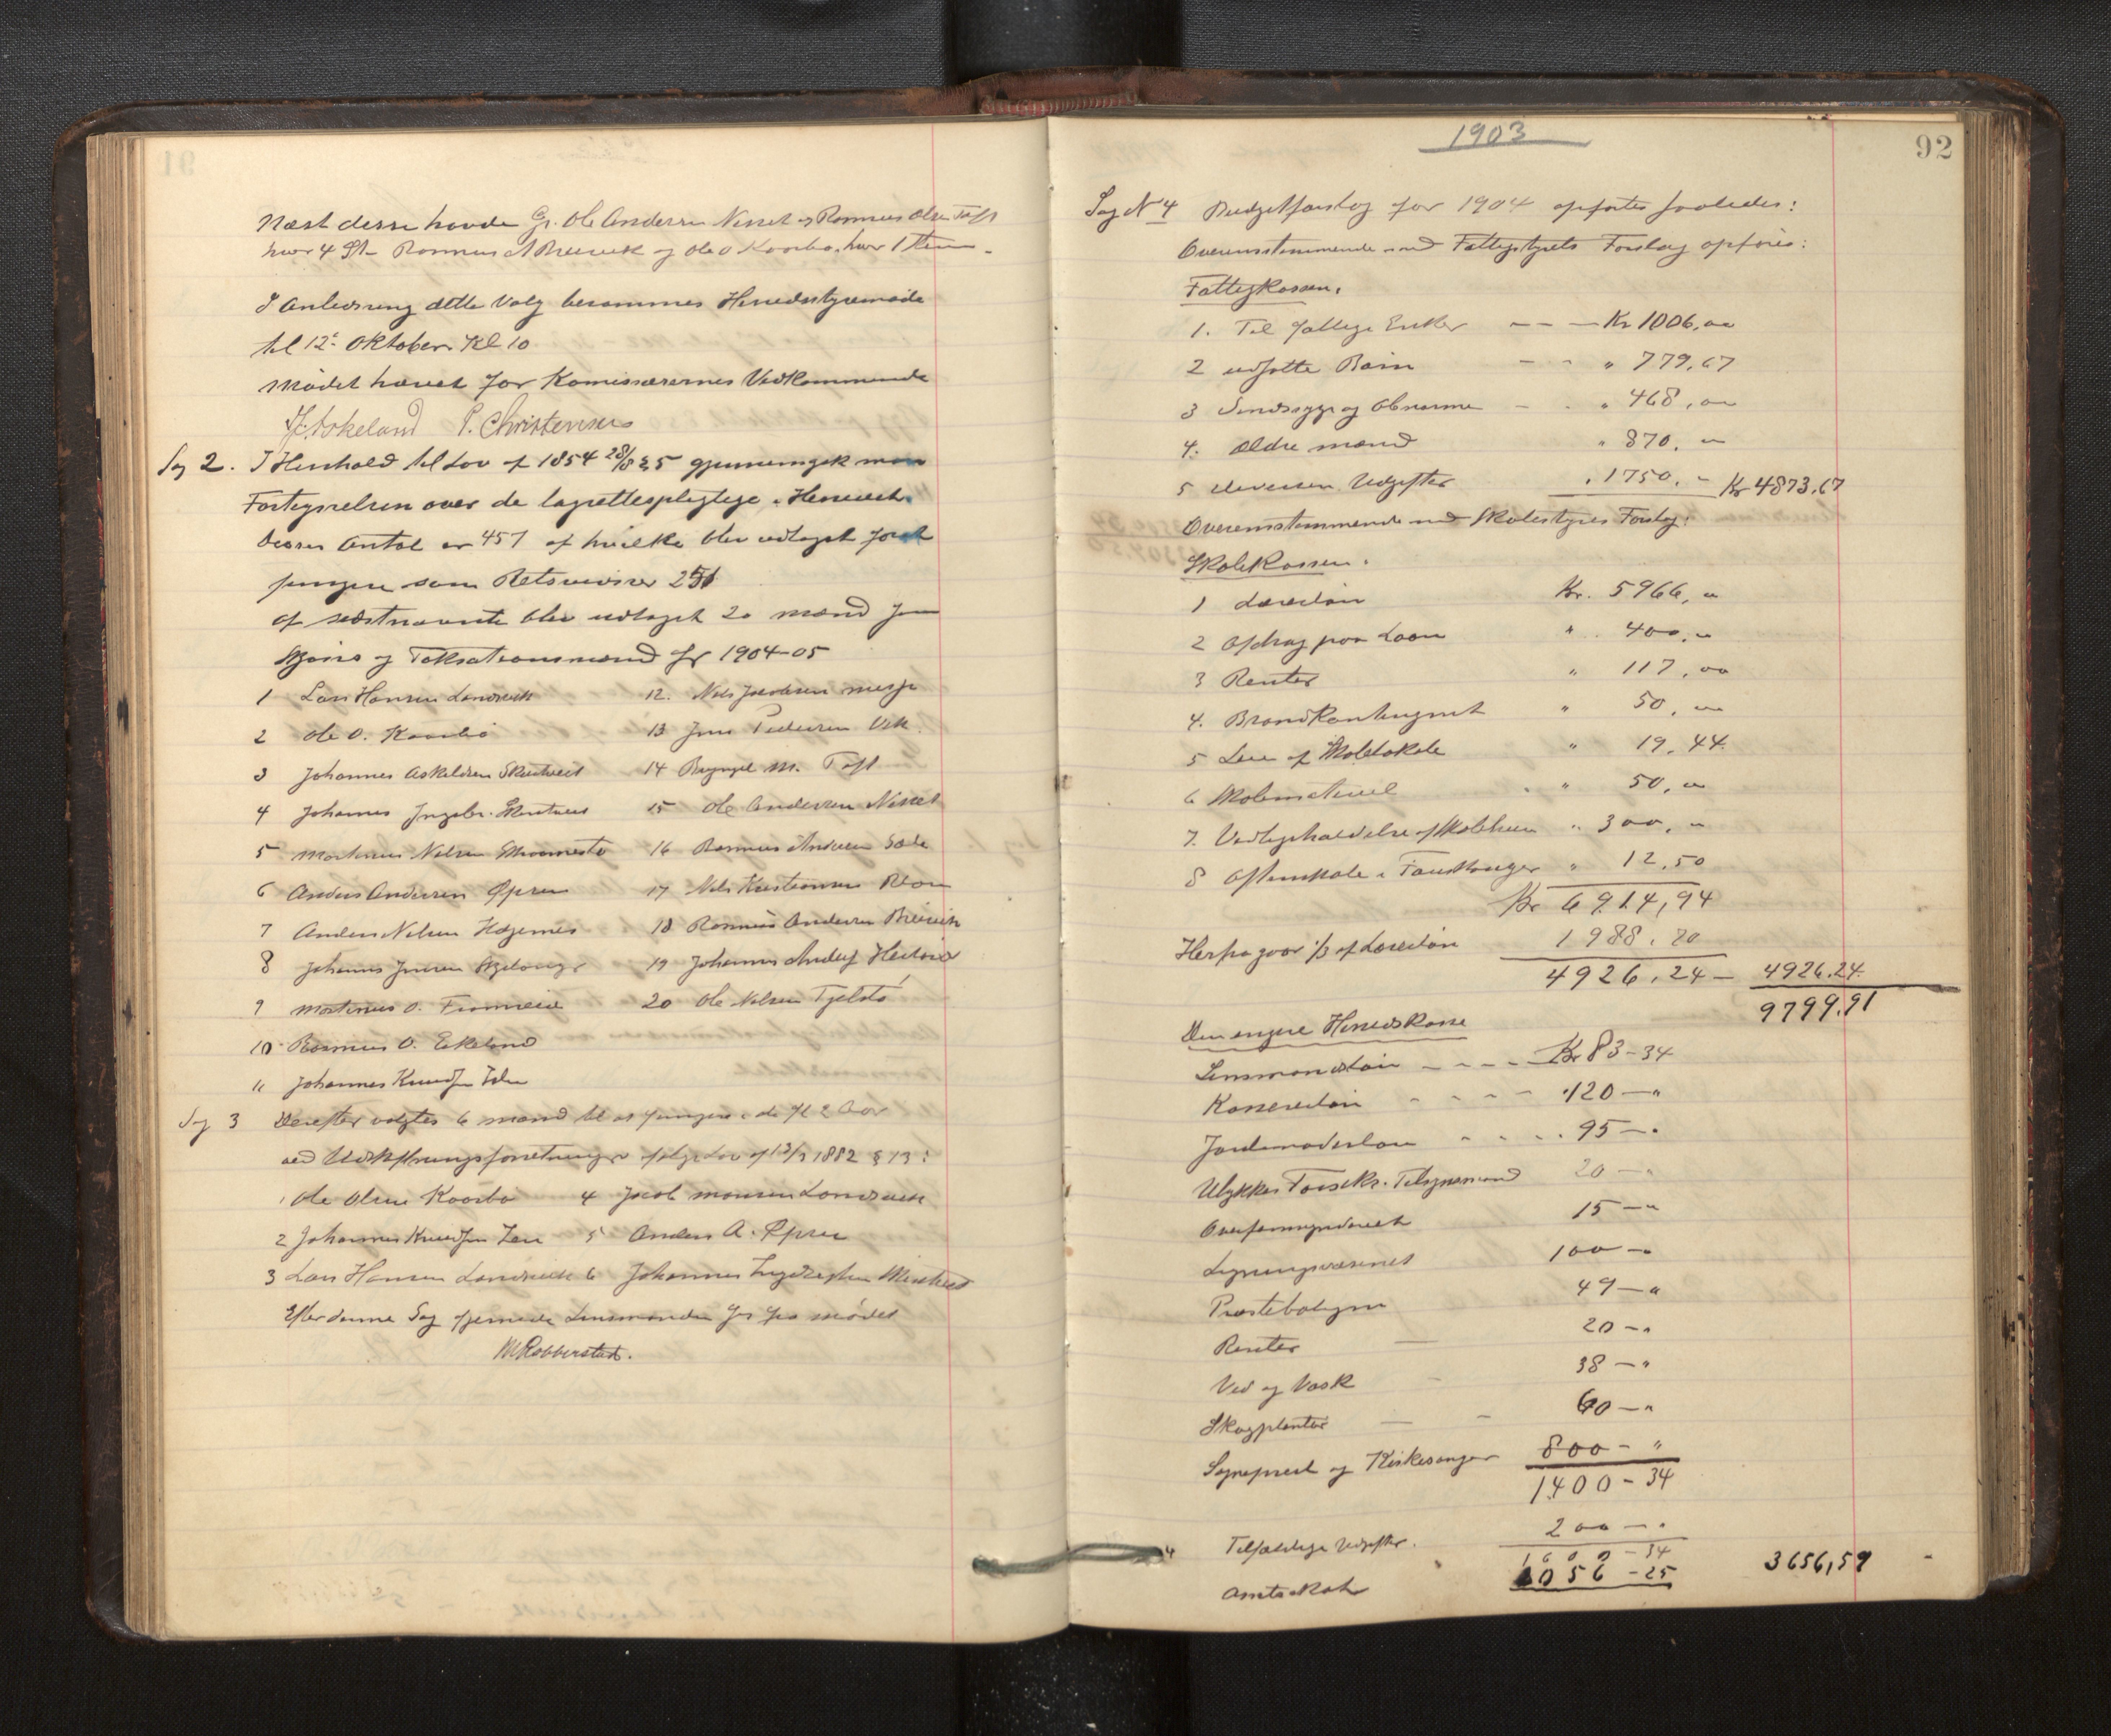 91
Næst desse havde Gr. Ole Andersen Nesset og Rasmus Olsen Toft
hver 4 St. Rasmus A Breivik og Ole O Kaarbø hver 1 stem.
I Anledning dette Valg berammes Herredsstyremøde
til 12te Oktober Kl 10
Mødet hævet for Komissærernes Vedkommende
Askeland P. Christensen
Sag 2. I Henhold til Lov af 1854 28/8 § 5 gjennemgik man
Fortegnelsen over de lagrettespligtige i Herredet.
Deres Antal er 457 af hvilke blev udtaget for at
fungere som Retsvidner 251
af sidstnævnte blev udtaget 20 mænd som
Skjøns og Taksationsmænd for 1904-05
1 Lars Hansen Landsvik
2 Ole O. Kaarbø
3 Johannes Askeldsen Skutveit
4 Johannes Ingebr.
5 Martinus Nelsen
6 Anders Andersen Øpsen
7 Anders Nelsen
8 Johannes Jensen
9 Martinus O. Fromreide
10 Rasmus O. Eikeland
11 Johannes Knudsen
12. Nels Jacobsen
13 Jens Pedersen Vik
14 M. Toft
15 Ole Andersen Nesset
16 Rasmus Andersen Sæle
17 Nels Kristiansen
18 Rasmus Andersen Breivik
19 Johannes Anders
20 Ole Nelsen Tjelstø
Sag 3 Derefter valgtes 6 mænd til at fungere i de f. 2 Aar
ved Udskiftningsforretninger ifølge Lov af 13/3 1882 § 13:
1 Ole Olsen Kaarbø 4 Jacob Monsen Landsvik
2 Johannes Knudsen 5 Anders A. Øpsen
3 Lars Hansen Landsvik 6 Johannes
Efter denne Sag fjernede Lensmanden sig fra mødet
M Røbberstad.
1903
92
Sag No 4 Budgetforslag for 1904 opførtes saaledes:
Overensstemmende med Fattigstyrets Forslag opføres:
Fattigkassen.
1. Til fattige Enker — — — Kr 1006, oo
2 udsatte Børn — - " 779,67
3 Sindssyge og Abnorme - . " 468, oo
4. Ældre mænd " 870, "
5 diverse Udgifter " 1750. - Kr 4873,67
Overensstemmende med Skolestyres Forslag:
Skolekassen.
1 Lærerløn Kr. 5966, "
2 Afdrag paa Laan " 400, "
3 Renter " 117, oo
4. Brandkontingent " 50, "
5 Leie af Skolelokale " 19. 44
6 Skolemateriel " 50, "
7. Vedligeholdelse af Skolehuse " 300, "
8 Aftenskole i " 12,50
Kr 6914,94
Herfra gaar 1/3 af Lærerløn 1988. 70
4926,24 — 4926.24.
9799.91
Den engere Herredskasse
Lensmandsløn - - - - Kr 83-34
Kassererløn " " - - 120 — "
Jordemoderløn - - . . 95 — "
Ulykkes Forsikr. Tilsynsmand 20 — "
Overformynderiet 15 — "
Ligningsvæsenet 100 — "
Præstebolign 49 — "
Renter — 20 — "
Ved og Vask - 38 — "
Skogplanter — - 60 — "
Sogneprest og Kirkesanger 800 — "
1400 - 34
Tilfældige Udgifter. 200 — "
1600 - 34
Amtsskat 2056 - 25 3656,59